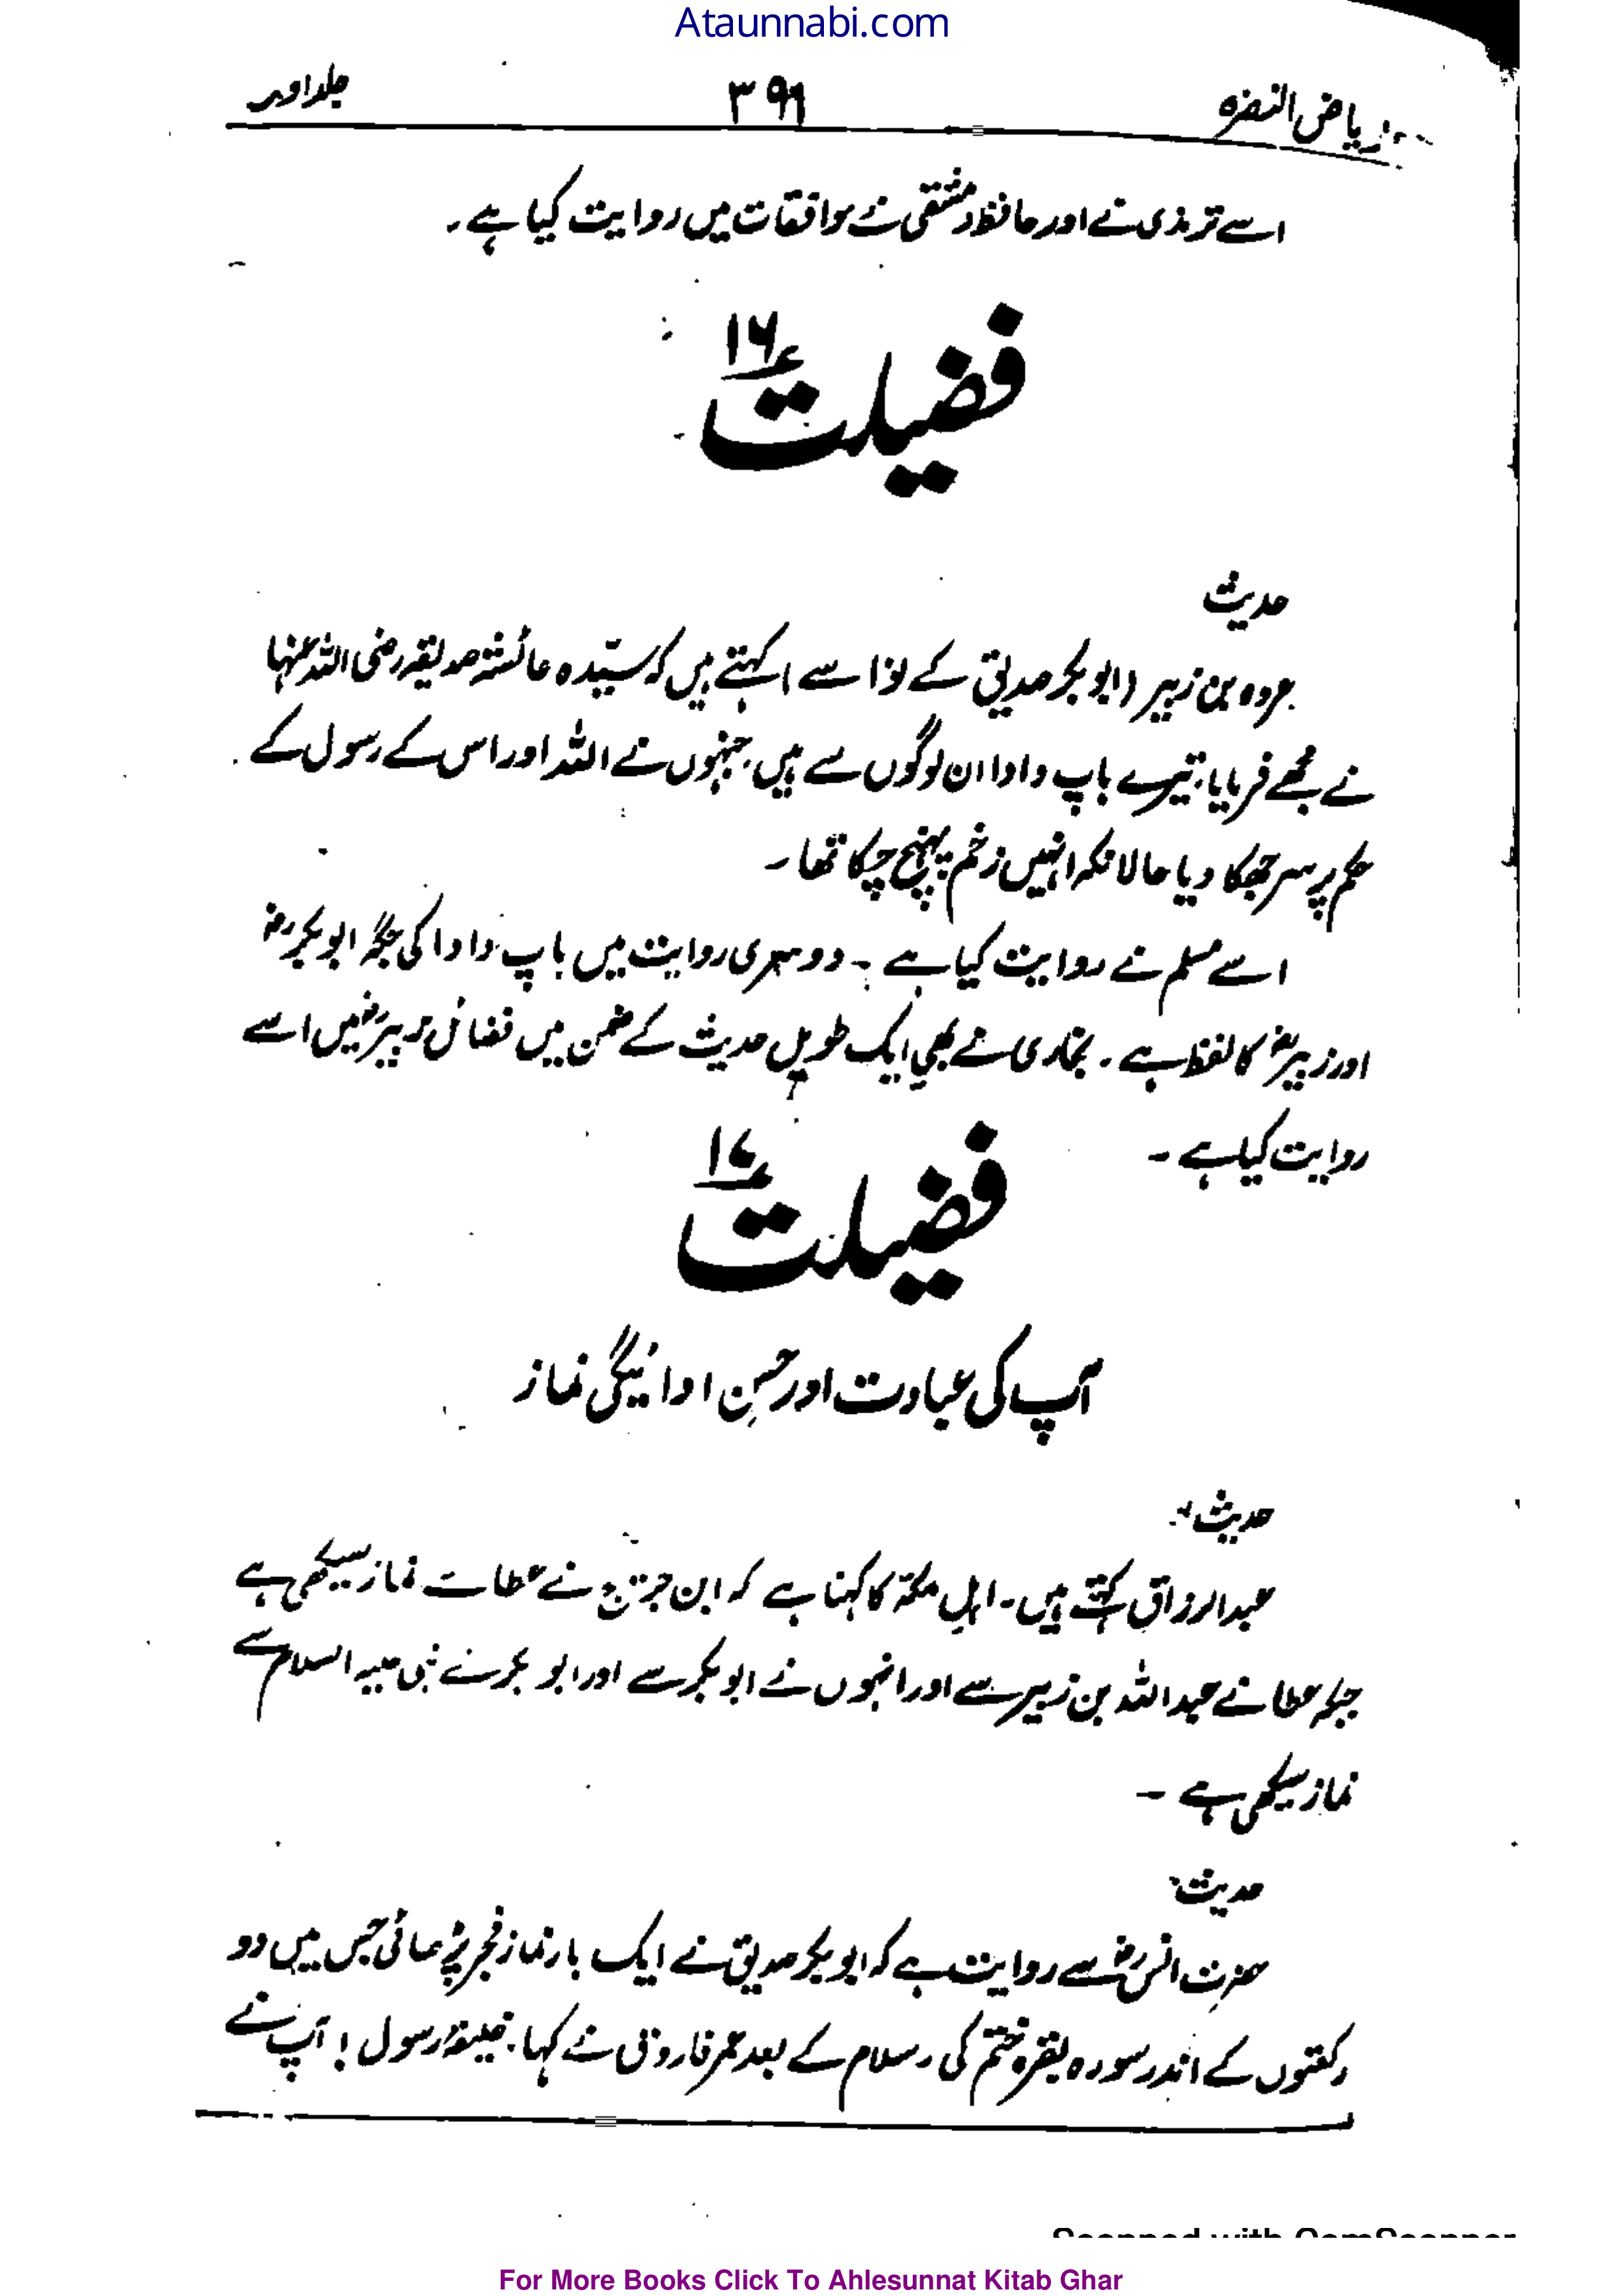 Ataunnabi.com
ریاض النضرہ ۳۹۶ جلد اوّل
اسے ترمذی نے اور حافظ دمشقی نے موافقات میں روایت کیا ہے۔
فضیلت ۱۶
حدیث
عروہ بن زبیر (ابوبکر صدیق کے نواسے) کہتے ہیں کہ سیّدہ عائشہ صدیقہ رضی اللہ عنہا
نے مجھے فرمایا: تیرے باپ دادا ان لوگوں سے ہیں جنہوں نے اللہ اور اس کے رسول کے
حکم پر سر جھکا دیا حالانکہ انہیں زخم پہنچ چکا تھا۔
اسے مسلم نے روایت کیا ہے۔ دوسری روایت میں باپ دادا کی جگہ ابوبکر رض
اور زبیر رض کا لفظ ہے۔ بخاری نے بھی ایک طویل حدیث کے ضمن میں فضائل زبیر رض میں اسے
روایت کیا ہے۔
فضیلت ۱۷
آپ کی عبادت اور حسنِ ادائیگی نماز
حدیث:
عبدالرزاق کہتے ہیں۔ اہلِ مکّہ کا کہنا ہے کہ ابن جریج نے عطا سے نماز سیکھی ہے
جبکہ عطا نے عبداللہ بن زبیر سے اور انہوں نے ابوبکر سے اور ابوبکر نے نبی علیہ السلام سے
نماز سیکھی ہے۔
حدیث:
حضرت انس رض سے روایت ہے کہ ابوبکر صدیق نے ایک بار نماز فجر پڑھائی جس میں دو
رکعتوں کے اندر سورہ بقرہ ختم کی۔ سلام کے بعد عمر فاروق نے کہا: خلیفۂ رسول! آپ نے
Scanned with CamScanner
For More Books Click To Ahlesunnat Kitab Ghar